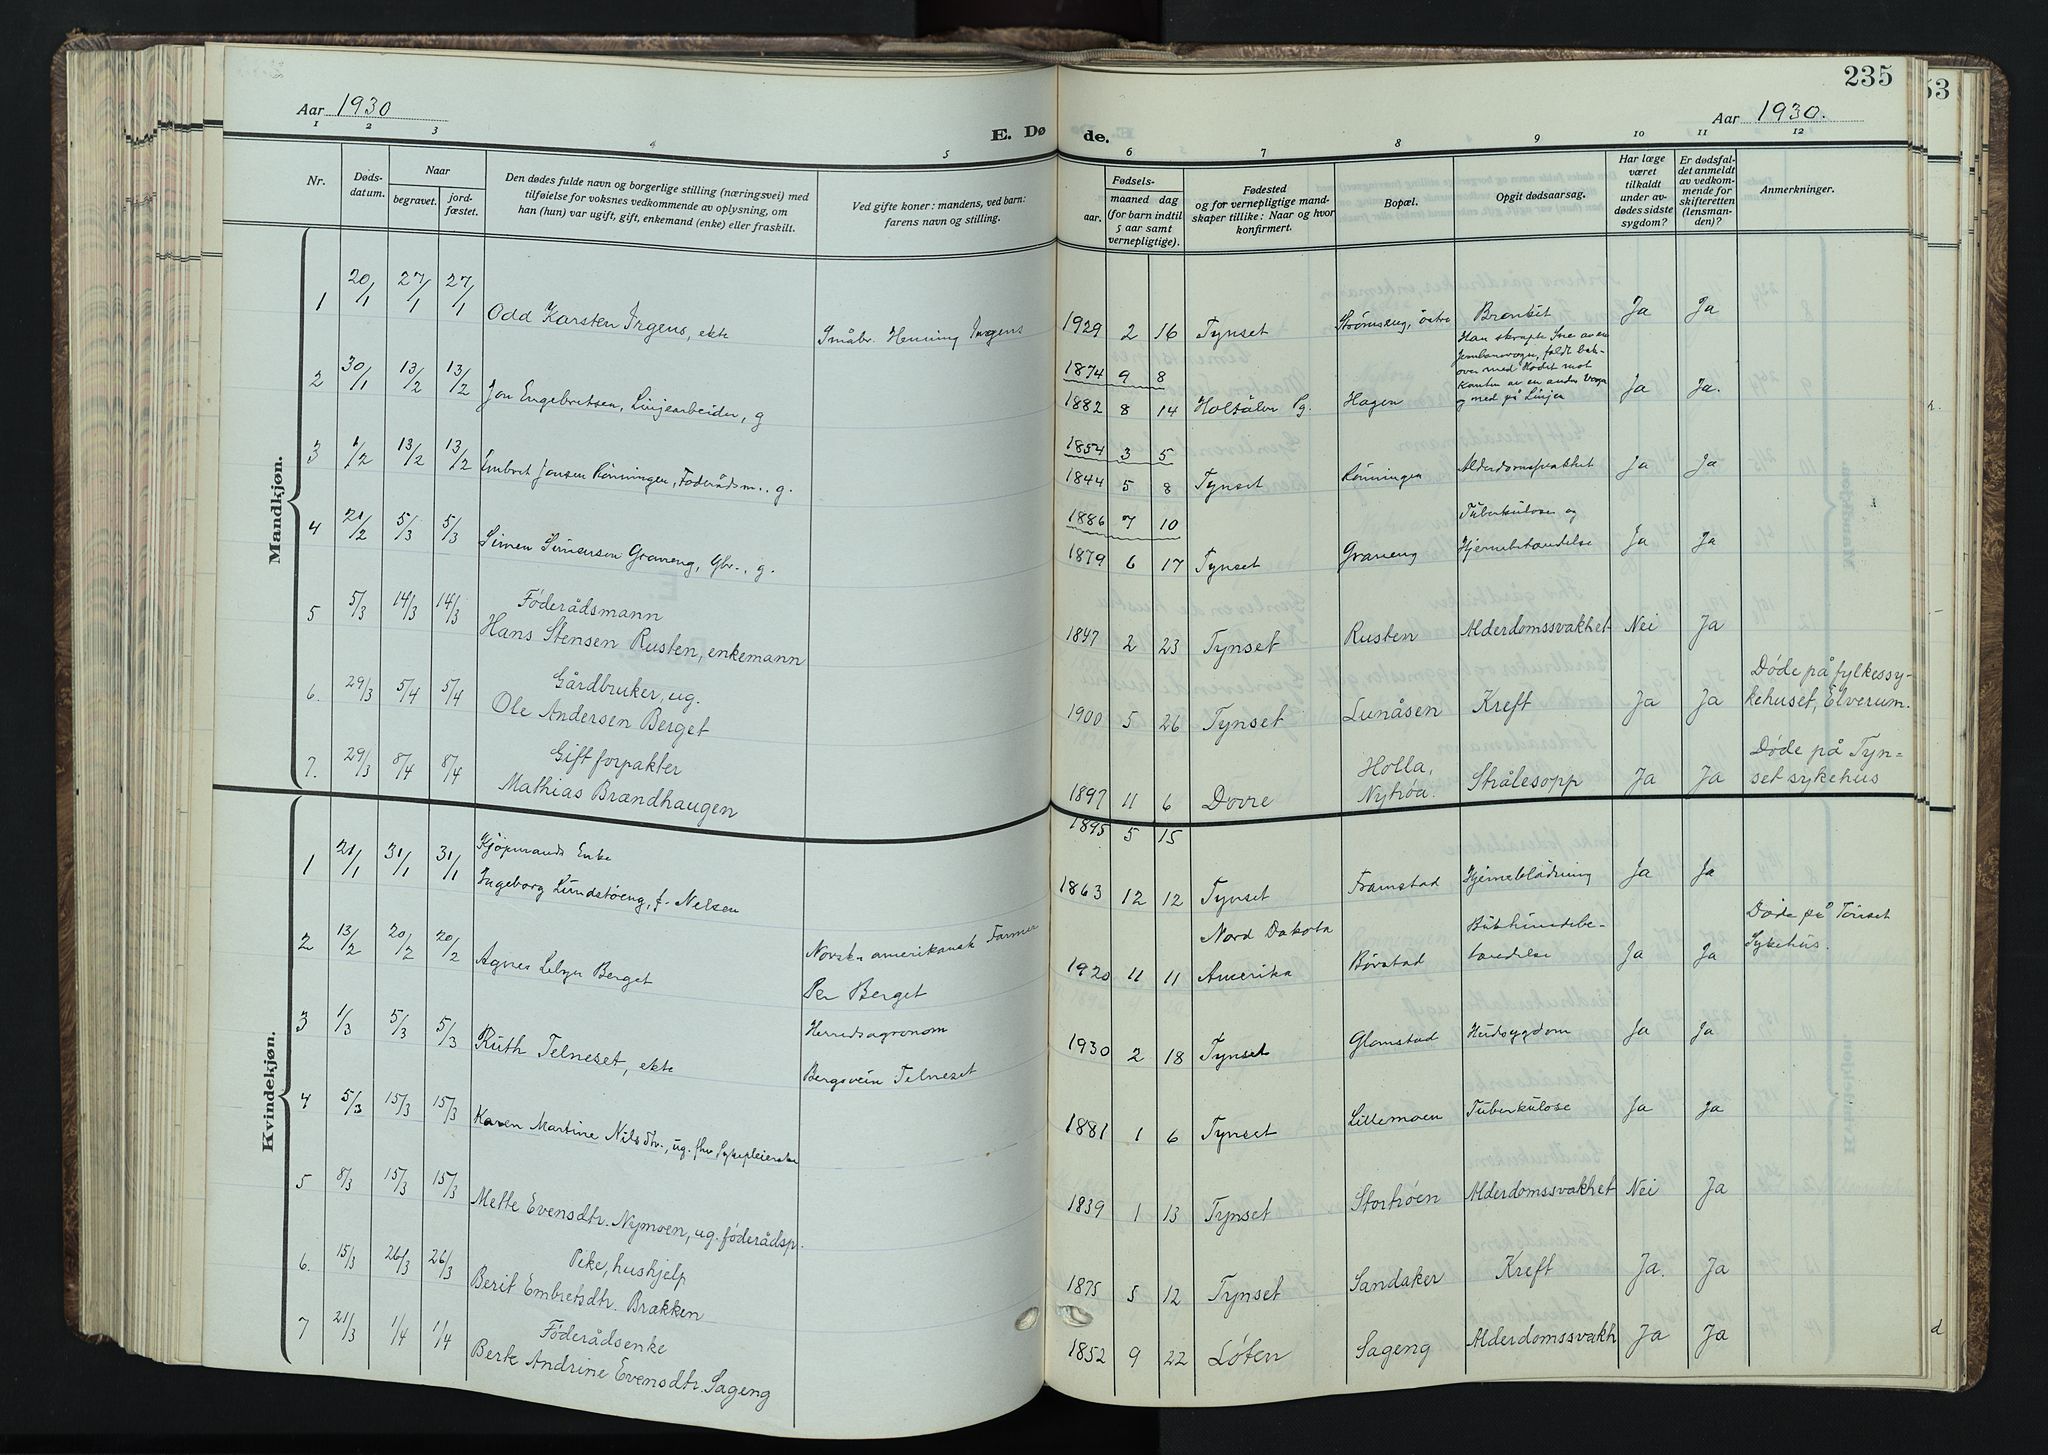 235
53
Aar 1930
E. Dø
de.
Aar 1930.
1 2 3 4 5
6 7 8 9 10 11 12
Nr.
Døds-
datum.
Naar
begravet.
jord-
fæstet.
Den dødes fulde navn og borgerlige stilling (næringsvei) med
tilføielse for voksnes vedkommende av oplysning, om
han (hun) var ugift, gift, enkemand (enke) eller fraskilt.
Ved gifte koner: mandens, ved barn:
farens navn og stilling.
Fødsels-
aar.
maaned dag
(for barn indtil
5 aar samt
vernepligtige).
Fødested
og for vernepligtige mand-
skaper tillike: Naar og hvor
konfirmert.
Bopæl.
Opgit dødsaarsag.
Har læge
været
tilkaldt
under av-
dødes sidste
sygdom?
Er dødsfal-
det anmeldt
av vedkom-
mende for
skifteretten
(lensman-
den)?
Anmerkninger.
Mandkjøn.
1 20/1 27/1 27/1 Odd Karsten Irgens, ekte Småbr. Henning Irgens 1929 2 16 Tynset Strømseng, östre Bronkit Ja Ja
2 30/1 13/2 13/2 Jon Engebretsen, Linjearbeider, g
1874 9 8
1882 8 14 Holtålen Pg. Hagen
Han skrapte Sne av en
Jernbanevogn, faldt bak-
over med Hodet mot
Kanten av en anden Vogn
og ned på Linjen
Ja Ja.
3 1/2 13/2 13/2 Embret Jonsen Rønningen, Föderådsm., g.
1854 3 5
1844 5 8 Tynset Rønningen Alderdomssvakhet Ja Ja
4 21/2 5/3 5/3 Simen Simensen Graneng, Gbr., g.
1886 7 10
1879 6 17 Tynset Graneng
Tuberkulose og
Hjernebetændelse Ja Ja
5 5/3 14/3 14/3 Føderådsmann
Hans Stensen Rusten, enkemann
1847 2 23 Tynset Rusten Alderdomssvakhet Nei Ja
6. 29/3 5/4 5/4 Gårdbruker, ug.
Ole Andersen Berget
1900 5 26 Tynset Lunåsen Kreft Ja Ja
Døde på fylkessy-
kehuset, Elverum.
7. 29/3 8/4 8/4 Gift forpakter
Mathias Brændhaugen
1897 11 6 Dovre
Holla,
Nytrøa. Strålesopp Ja Ja
Døde på Tyn-
set sykehus
Kvindekjøn.
1895 5 15
1 21/1 31/1 31/1 Kjøpmands Enke
Ingeborg Lundstöeng, f. Nelsen
1863 12 12 Tynset Framstad Hjerneblödning Ja Ja
2 13/2 20/2 20/2 Agnes Berget
Norsk-amerikansk Farmer
Per Berget
1920 11 11
Nord Dakota
Amerika Børstad
Bukhindebe-
tændelse Ja Ja
Døde på Tönset
Sykehus.
3 1/3 5/3 5/3 Ruth Telneset, ekte
Herredsagronom
Bergsvein Telneset
1930 2 18 Tynset Glomstad Hudsygdom Ja Ja
4 5/3 15/3 15/3 Karen Martine Nilsdtr., ug. fhv Sykepleierske
1881 1 6 Tynset Lillemoen Tuberkulose Ja Ja
5 8/3 15/3 15/3 Mette Evensdtr. Nymoen, ug. føderådsp.
1839 1 13 Tynset Stortrøen Alderdomssvakhet Nei Ja
6. 15/3 26/3 26/3 Pike, hushjelp
Berit Embretsdtr. Brækken
1875 5 12 Tynset Sandaker Kreft Ja. Ja
7 21/3 1/4 1/4 Føderådsenke
Berte Andrine Evensdtr. Sageng
1852 9 22 Løten Sageng Alderdomssvakh Ja Ja